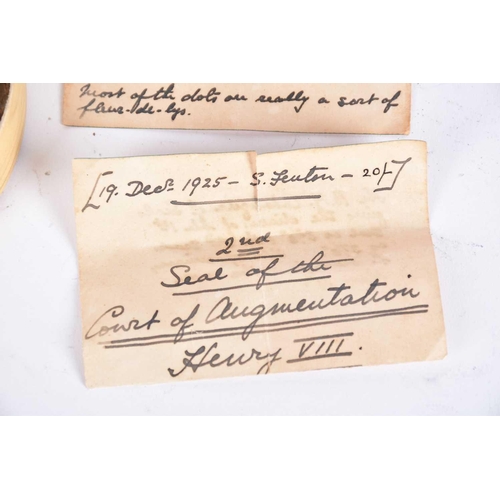 Most of the dots are really a sort of
fleur-de-lys.
[19. Decr. 1925 - S. Fenton - 20/-]
2nd
Seal of the
Court of Augmentation
Henry VIII.